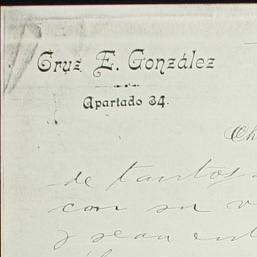 Cruz E. González
Apartado 34.
Ch
de tantos
con su v
y sean ent